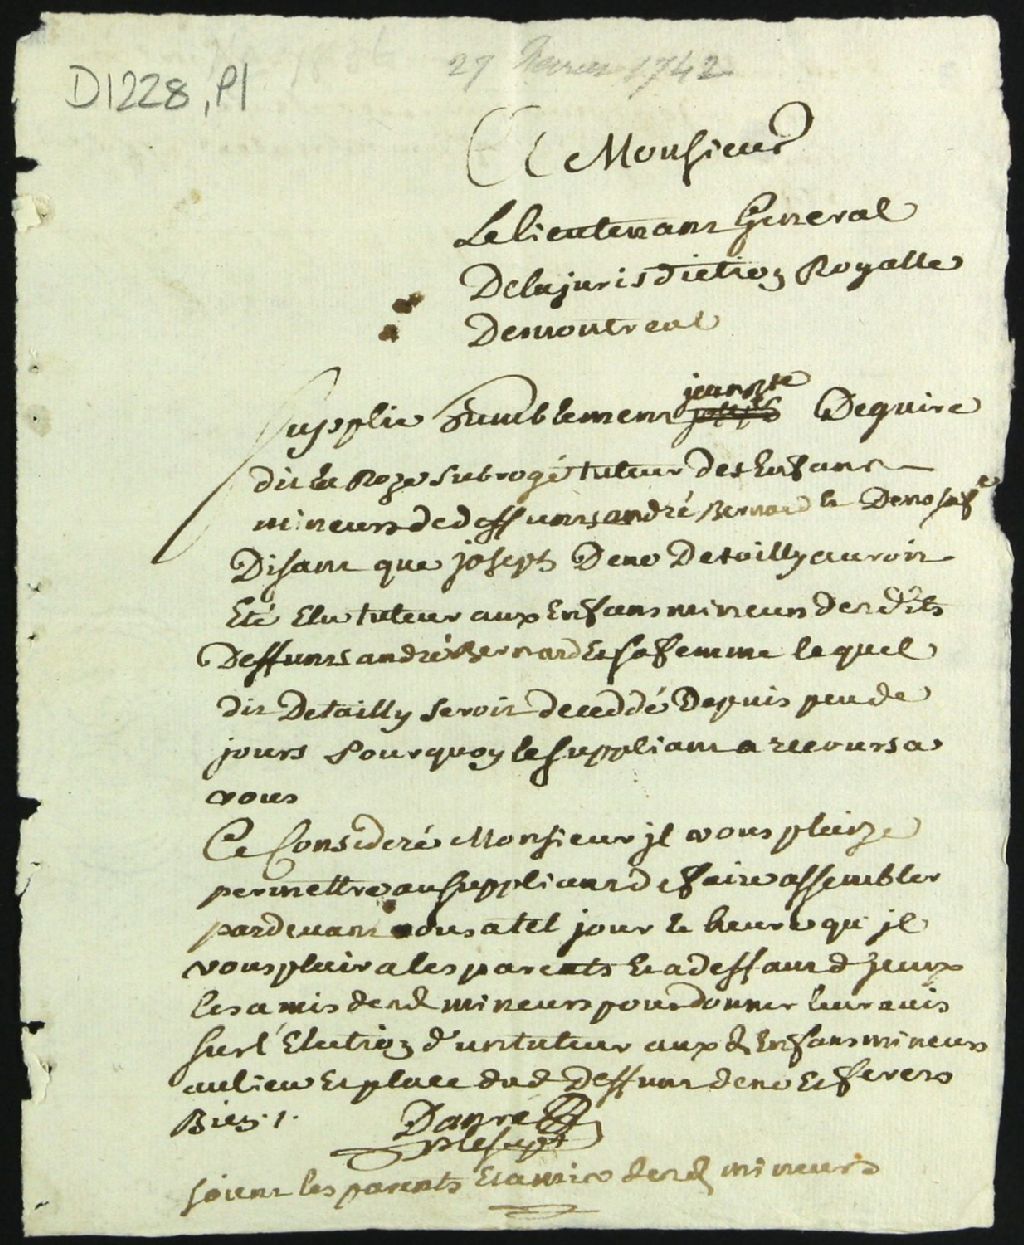 29 fevrier 1742
D1228, P1
A Monsieur
Le lieutenant General
De la jurisdiction Royalle
De montreal
Supplie humblement jeanbte Dequire
dit la Roze subrogé tuteur des Enfans
mineurs de deffunts andré Bernard & De no sa fe
Disant que joseph Deno Detailly auroit
Eté Elu tuteur aux Enfans mineurs desdits
Deffunts andré Bernard Et sa femme lequel
dit Detailly seroit deceddé Depuis peu de
jours Pourquoy le suppliant a recours a
vous
Ce Consideré Monsieur jl vous plaize
permettre au suppliant de faire assembler
pardevant vous a tel jour & heure qu'jl
vous plaira les parents Et a deffaud d'jceux
les amis desd mineurs pour donner leur avis
sur l'Election d'un tuteur aux d Enfans mineurs
au lieu Et place dud Deffunt deno Et ferers
Bien ./.
Danré
p le supt
soient les parents Et amis desd mineurs